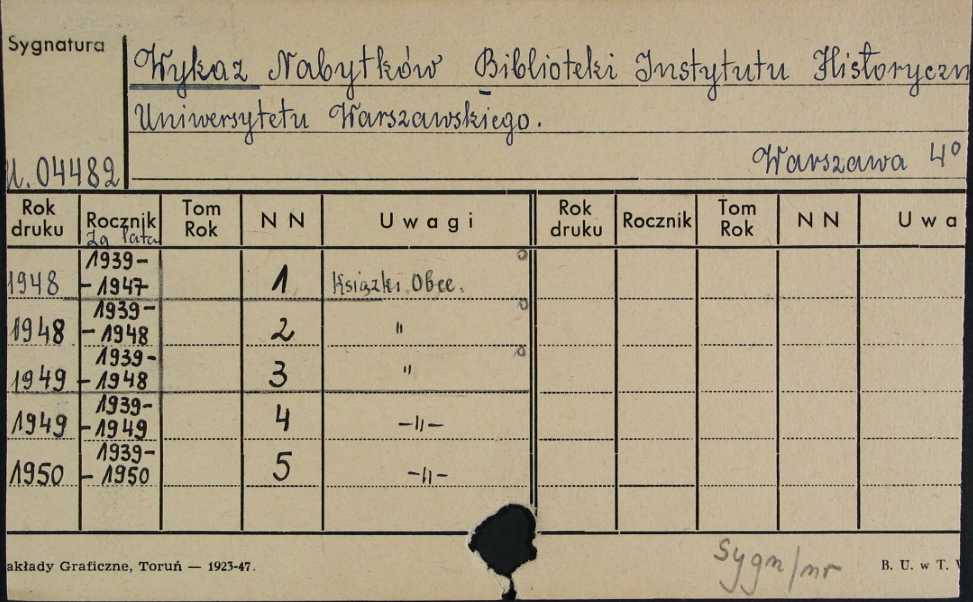 Sygnatura
Wykaz Nabytków Biblioteki Instytutu Historyczn
Uniwersytetu Warszawskiego.
U. 04482 Warszawa 4°
Rok druku Rocznik Tom Rok N N Uwagi Rok druku Rocznik Tom Rok N N Uwa
za lata
1948 1939-1947 1 Książki Obce.
1948 1939-1948 2 "
1949 1939-1948 3 "
1949 1939-1949 4 -"-
1950 1939-1950 5 -"-
Sygn/nr
akłady Graficzne, Toruń — 1923-47. B. U. w T.